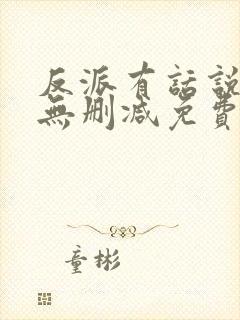 反派有話說
無刪减免費
童彬